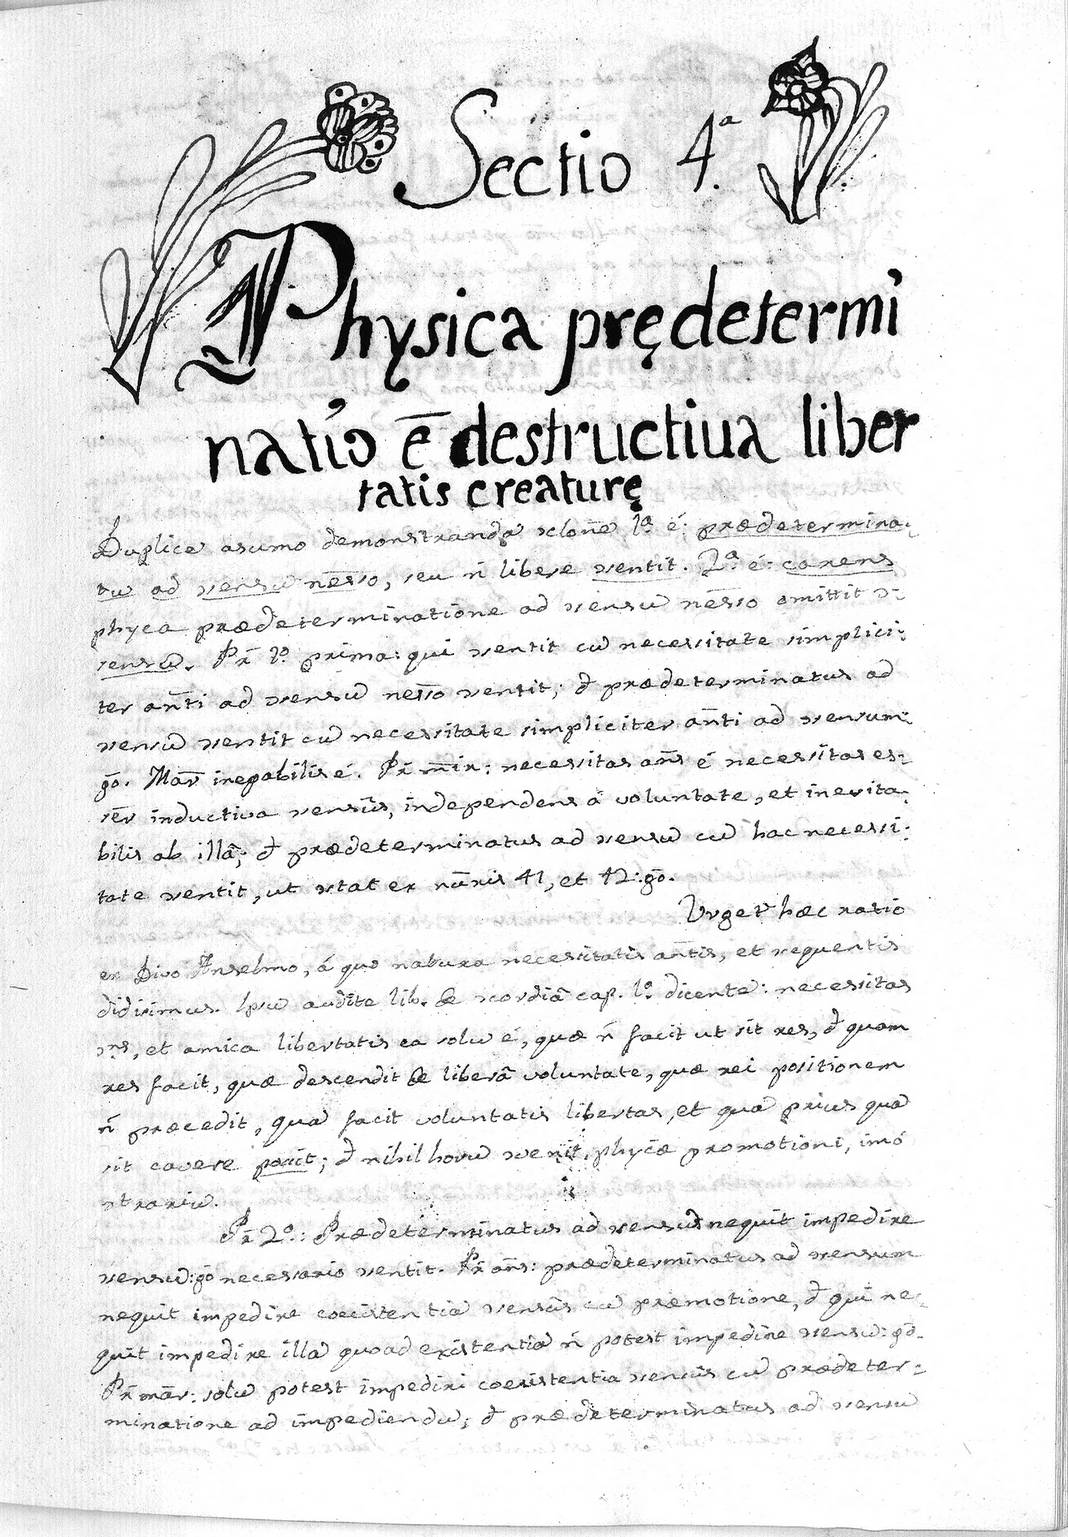 Sectio 4.ª
Physica prędetermi
natio ē destructiua liber
tatis creaturę
Duplice asumo demonstranda 1ª é: prædetermina-
tu ad nēsso, seu ñ libere sentit. 2ª é: carens
phyca prædeterminatione ad sensū nēsso omittit
sensū. Pr̄ 1ª prima: qui sentit cū necessitate simplici-
ter añti ad sensū nēsso sentit; prædeterminatus ad
sensū sentit cū necessitate simpliciter añti ad sensum:
gō. Maȓ inegabilis é. Pr̄ : necessitas añs é necessitas es-
inductiua sensūs, independens á voluntate, et ineuita-
bilis ab illâ; prædeterminatus ad sensū cū hac necessi-
tate sentit, ut stat ex 41, et 42: gō.
Urget hæc ratio
ex Divo Anselmo, á quo natura necessitatis añtis, et sequentis
didisimus. Ipsū audite lib. de cap. 1º dicente: necessitas
et amica libertatis ea solū é, quæ ñ facit ut sit res, quam
res facit, quæ descendit de liberâ voluntate, quæ rei positionem
ñ præcedit, qua facit voluntatis libertas, et qua prius qua
sit cavere posit; nihil horū phycæ promotioni, imó
ntrariū.
Pr̄ 2º: Prædeterminatus ad sensū nequit impedire
sensū: gō necessario sentit. Pr̄ añs: prædeterminatus ad sensum
nequit impedire coexistentia sensūs cū præmotione, qui ne-
quit impedire illa quoad existentia ñ potest impedire sensū: gō.
Pr̄ māȓ: solū potest impediri coexistentia sensūs cū prædeter-
minatione ad impediendū; prædeterminatus ad sensū